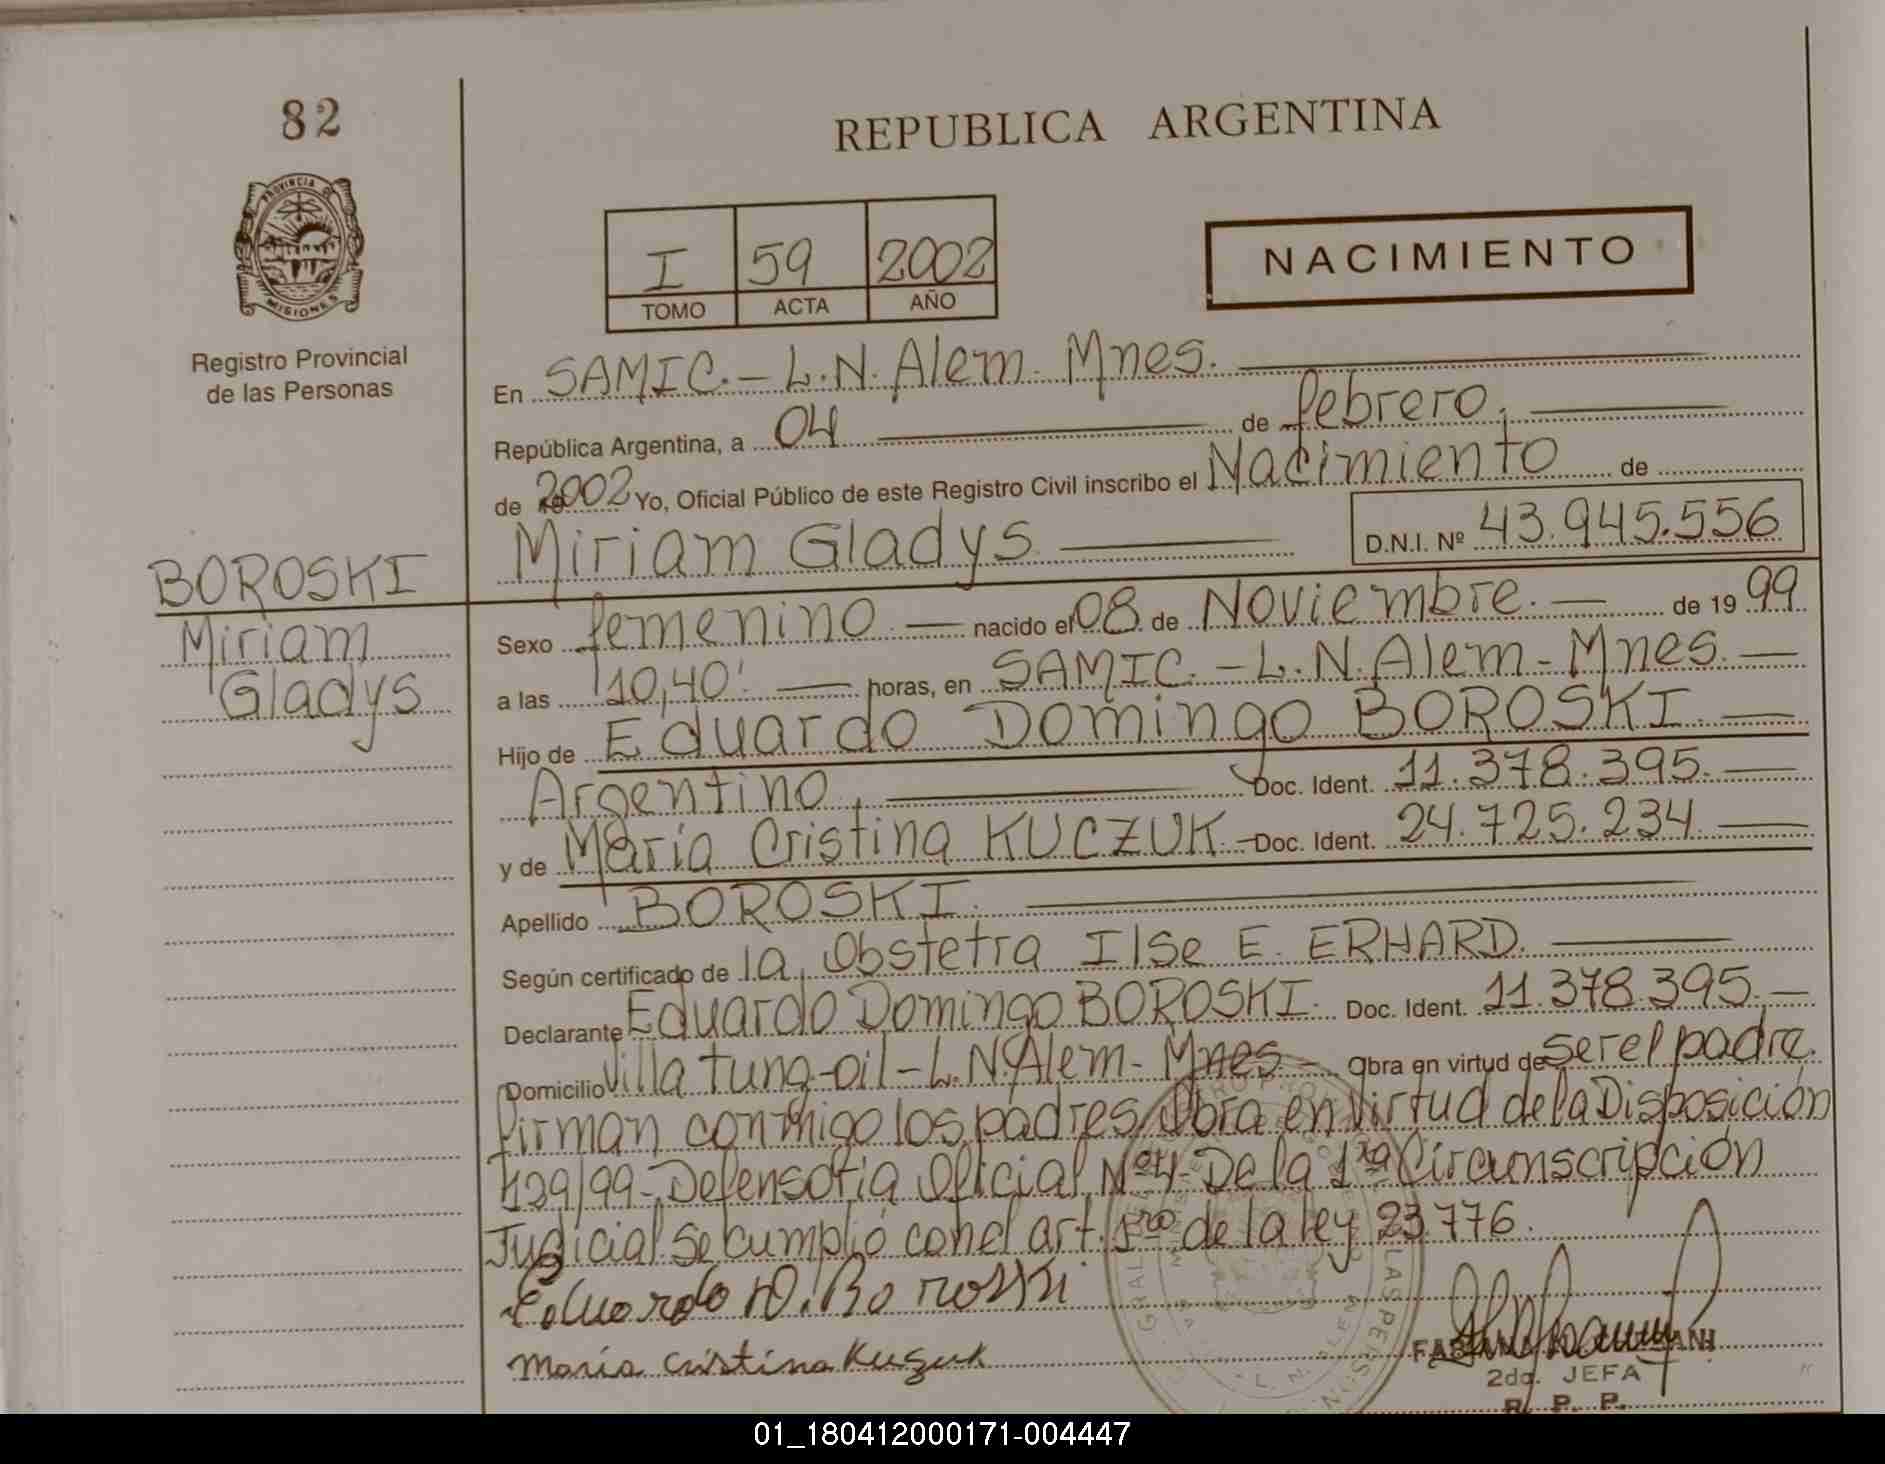 82
REPUBLICA ARGENTINA
PROVINCIA DE
MISIONES
Registro Provincial
de las Personas
I 59 2002
TOMO ACTA AÑO
NACIMIENTO
En SAMIC.- L.N. Alem. Mnes.
República Argentina, a 04 de febrero.
de 2002 Yo, Oficial Público de este Registro Civil inscribo el Nacimiento de
Miriam Gladys D.N.I. Nº 43.945.556
BOROSKI
Miriam
Gladys
Sexo femenino. nacido el 08 de Noviembre. de 19 99
a las 10,40' horas, en SAMIC. - L.N. Alem - Mnes.
Hijo de Eduardo Domingo BOROSKI.
Argentino, Doc. Ident. 11.378.395.
y de María Cristina KUCZUK. Doc. Ident. 24.725.234
Apellido BOROSKI.
Según certificado de la Obstetra Ilse E. ERHARD.
Declarante Eduardo Domingo BOROSKI. Doc. Ident. 11.378.395.
Domicilio Villa tung-oil - L.N. Alem - Mnes Obra en virtud de ser el padre.
firman conmigo los padres, Obra en virtud de la Disposición
429/99 - Defensoría Oficial Nº 4 - De la 1ra Circunscripción
Judicial se cumplió con el art. 1ro de la ley 23.776.
Eduardo D. Boroski
María Cristina Kuzuk
2da. JEFA
R. P. P.
01_180412000171-004447